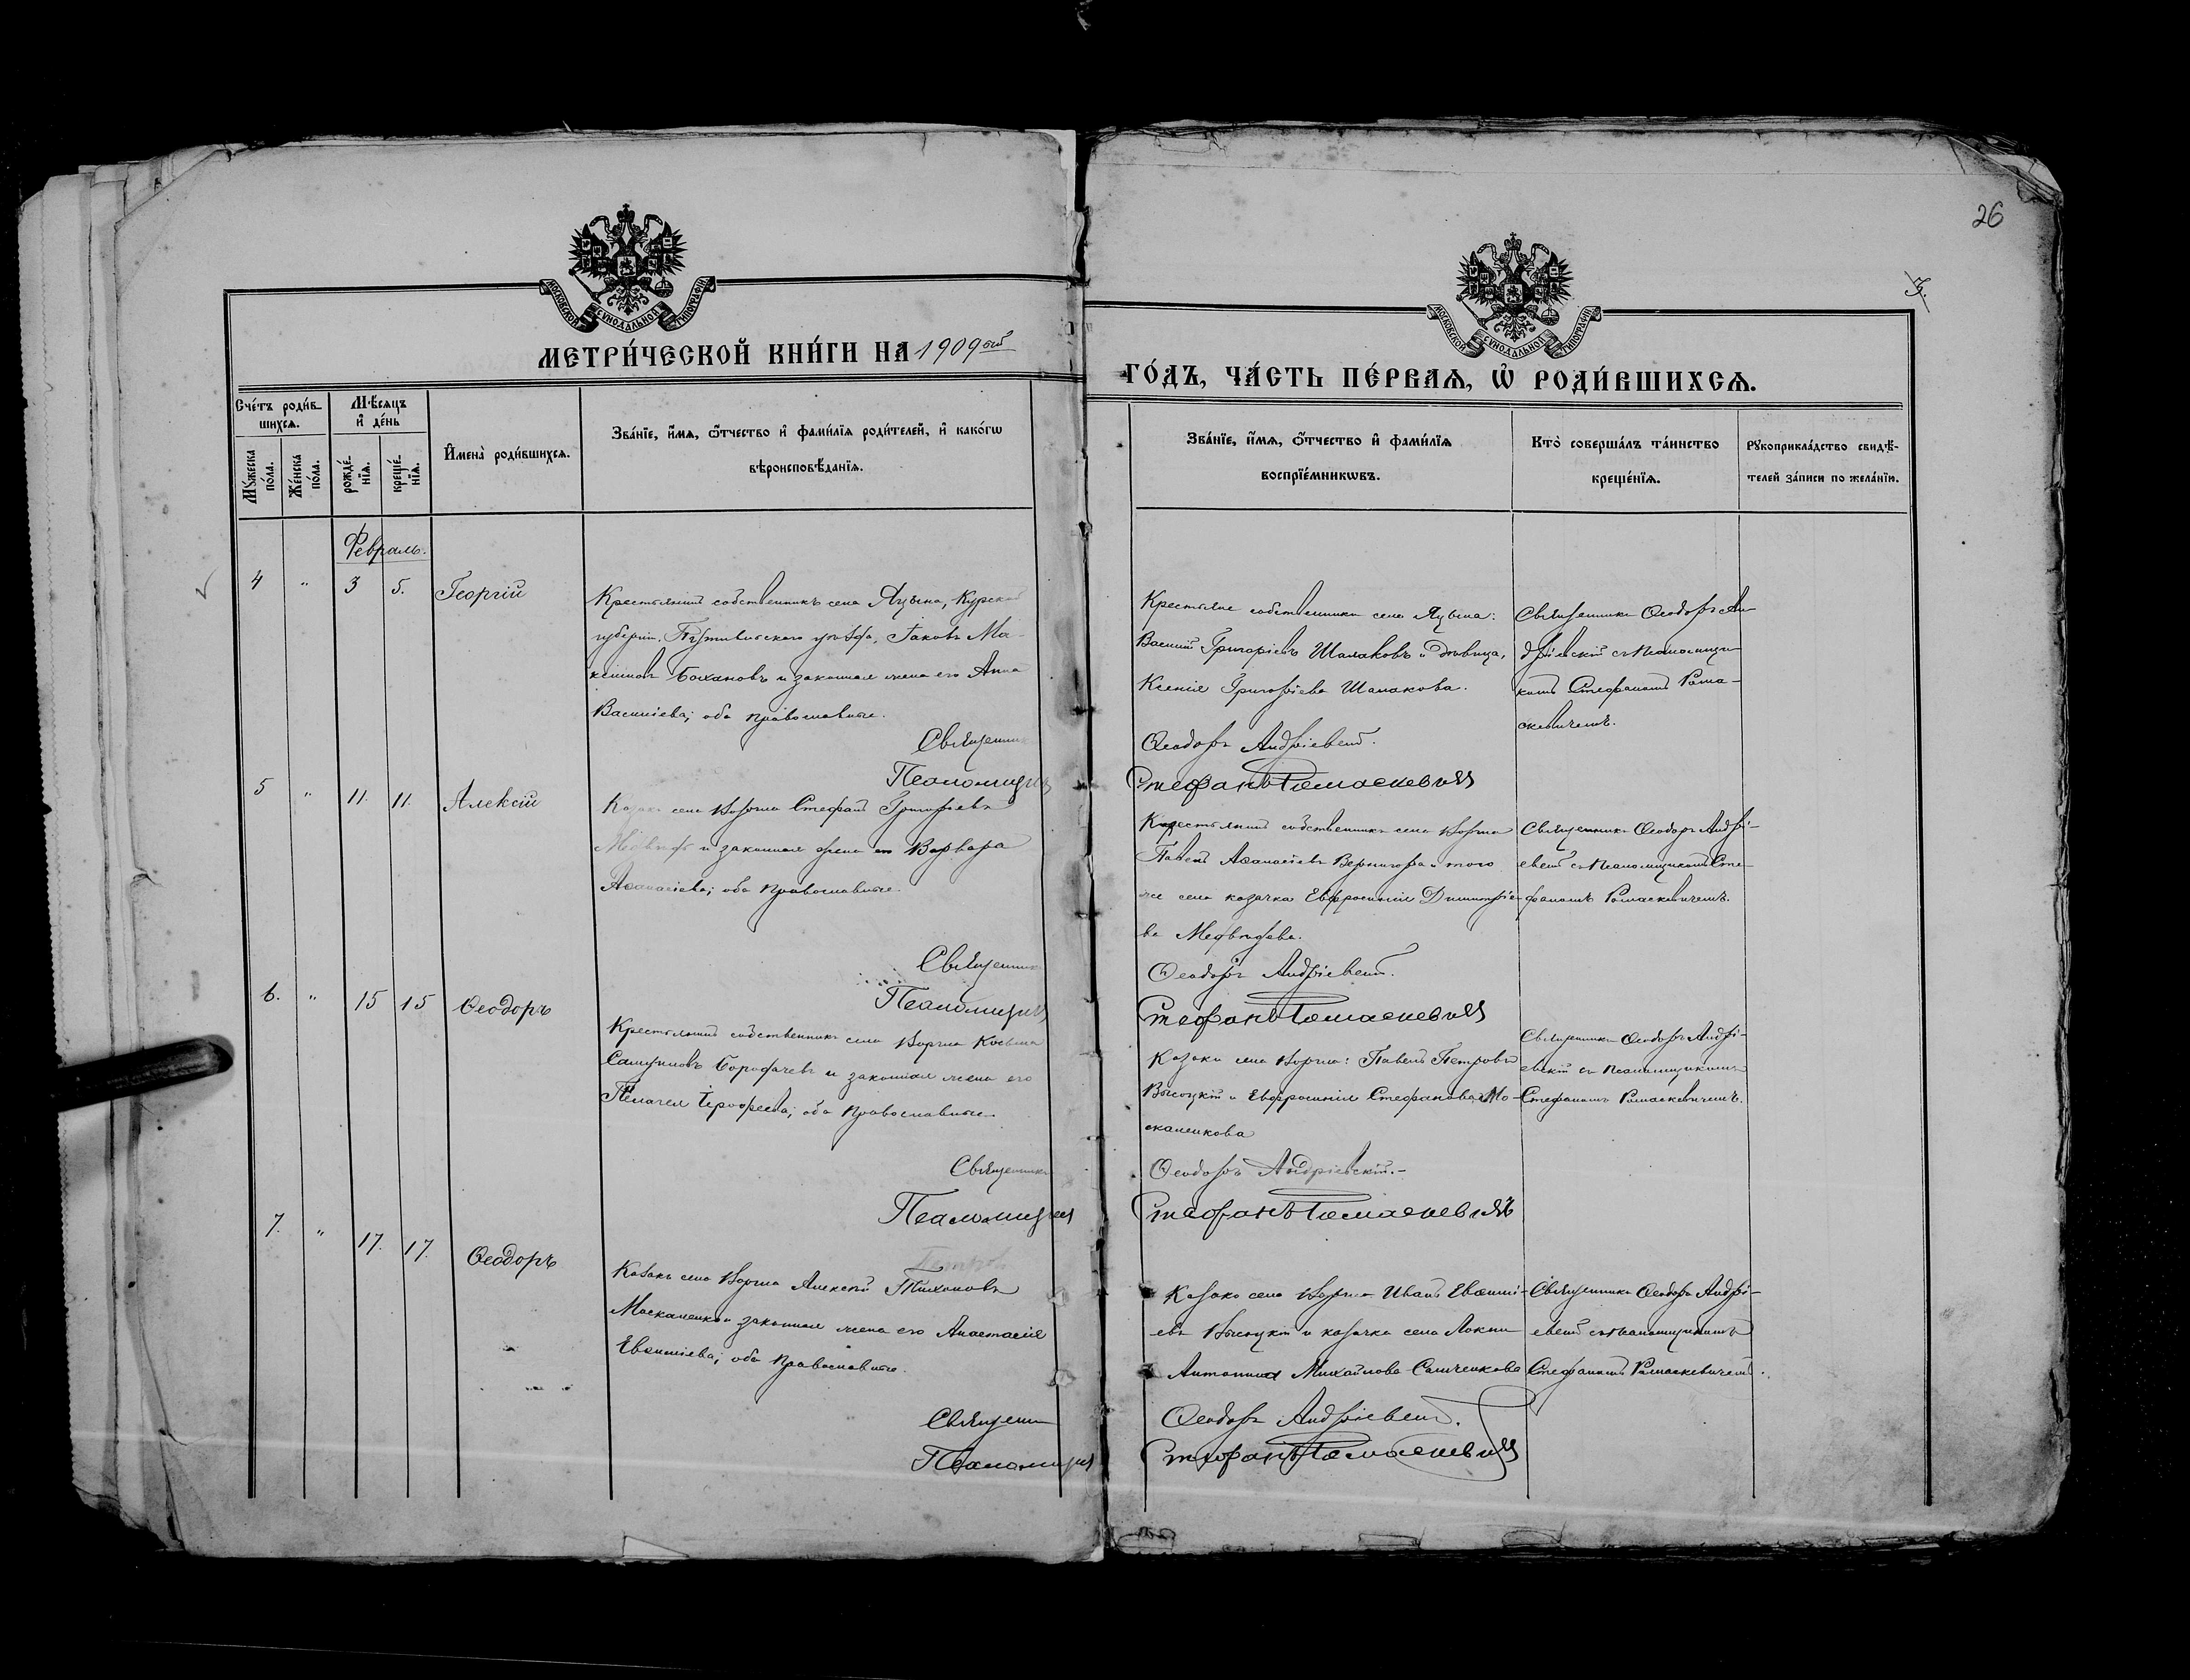 26
3.
МОСКОВСКОЙ СѴНОДАЛЬНОЙ ТИПОГРАФІИ
МОСКОВСКОЙ СѴНОДАЛЬНОЙ ТИПОГРАФІИ
МЕТРИ́ЧЕСКОЙ КНИ́ГИ НА 1909ый
ГО́ДЪ, ЧА́СТЬ ПЕ́РВАѦ, Ѡ҆ РОДИ́ВШИХСѦ.
Сче́тъ роди́в-
шихсѧ.
Мꙋ́жеска по́ла.
Же́нска по́ла.
Мѣ́сѧцъ
и҆ де́нь
рожде́-нїѧ.
креще́-нїѧ.
И҆мена̀ роди́вшихсѧ.
Зва́нїе, и҆́мѧ, ѻ҆́тчество и҆ фами́лїѧ роди́телей, и҆ како́гѡ
вѣроисповѣ́данїѧ.
Зва́нїе, и҆́мѧ, ѻ҆́тчество и҆ фами́лїѧ
воспрїе́мникѡвъ.
Кто̀ соверша́лъ та́инство
креще́нїѧ.
Рꙋкоприкла́дство свидѣ́-
телей за́писи по жела́нїю.
Февраль.
4 " 3 5. Георгій
Крестьянинъ собственникъ села Яцына, Курской
губерніи, Путивльскаго уѣзда, Іаковъ Ма-
ксимовъ Бохановъ и законная жена его Анна
Василіева; оба православные.
Священник
Псаломщикъ
Крестьяне собственники села Яцына:
Василій Григоріевъ Шалаковъ и дѣвица,
Ксенія Григоріева Шалакова.
Ѳеодоръ Андріевскій.
Стефанъ Ромаскевичъ
Священникъ Ѳеодоръ Ан-
дріевскій съ псаломщи-
комъ Стефаномъ Рома-
скевичемъ.
5 " 11. 11. Алексій
Козакъ села Воргла Стефанъ Григоріевъ
Медвѣдь и законная жена его Варвара
Аѳанасіева; оба православные.
Священник
Псаломщикъ
Крестьянинъ собственникъ села Воргла
Павелъ Аѳанасіевъ Вернигора и того
же села козачка Евфросинія Димитріе-
ва Медвѣдева.
Ѳеодоръ Андріевскій.
Стефанъ Ромаскевичъ
Священникъ Ѳеодоръ Андрі-
евскій съ псаломщикомъ Сте-
фаномъ Ромаскевичемъ.
6. " 15 15 Ѳеодоръ
Крестьянинъ собственникъ села Воргла Косьма
законная жена его
Пелагея Іероѳеева; оба православные.
Священникъ
Псаломщикъ
Козаки села Воргла: Павелъ Петровъ
Высоцкій и Евфросинія Стефанова Мо-
скаленкова
Ѳеодоръ Андріевскій.
Стефанъ Ромаскевичъ
Священникъ Ѳеодоръ Андрі-
евскій съ псаломщикомъ
Стефаномъ Ромаскевичемъ.
7. " 17. 17. Ѳеодоръ
Козакъ села Воргла Алексій Тихоновъ
Москаленко и законная жена его Анастасія
Евѳиміева; оба православные.
Священни
Псаломщикъ
Козакъ села Воргла Иванъ Евѳимі-
евъ Высоцкій и козачка села Локни
Антонина Михайлова Самченкова
Ѳеодоръ Андріевскій.
Стефанъ Ромаскевичъ
Священникъ Ѳеодоръ Андрі-
евскій съ псаломщикомъ
Стефаномъ Ромаскевичемъ.